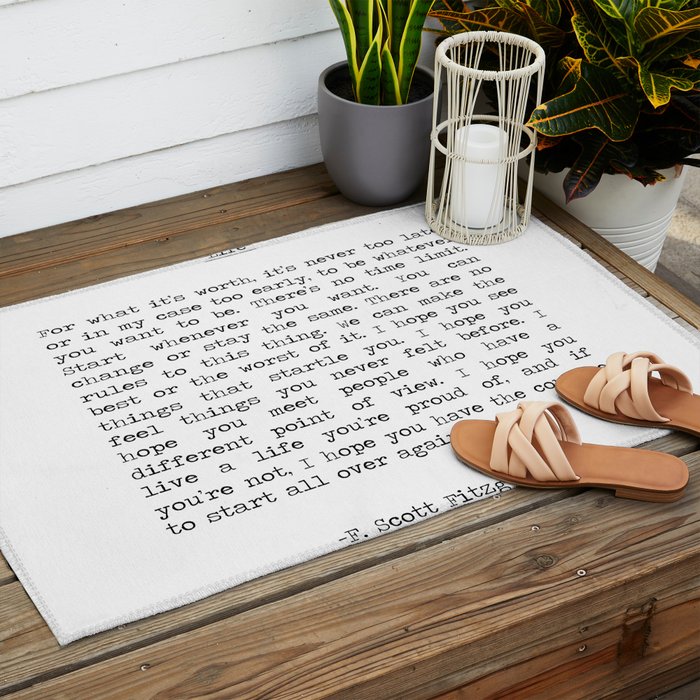 Life
For what it's worth, it's never too late
or in my case too early, to be whatever
you want to be. There's no time limit.
Start whenever you want. You can
change or stay the same. There are no
rules to this thing. We can make the
best or the worst of it. I hope you see
things that startle you. I hope you
feel things you never felt before. I
hope you meet people who have a
different point of view. I hope you
live a life you're proud of, and if
you're not, I hope you have the
to start all over again
-F. Scott